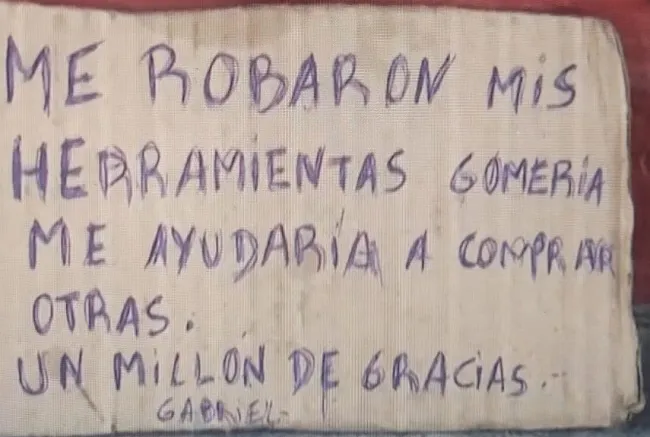 ME ROBARON MIS
HERRAMIENTAS GOMERÍA
ME AYUDARÍA A COMPRAR
OTRAS.
UN MILLÓN DE GRACIAS.-
GABRIEL-